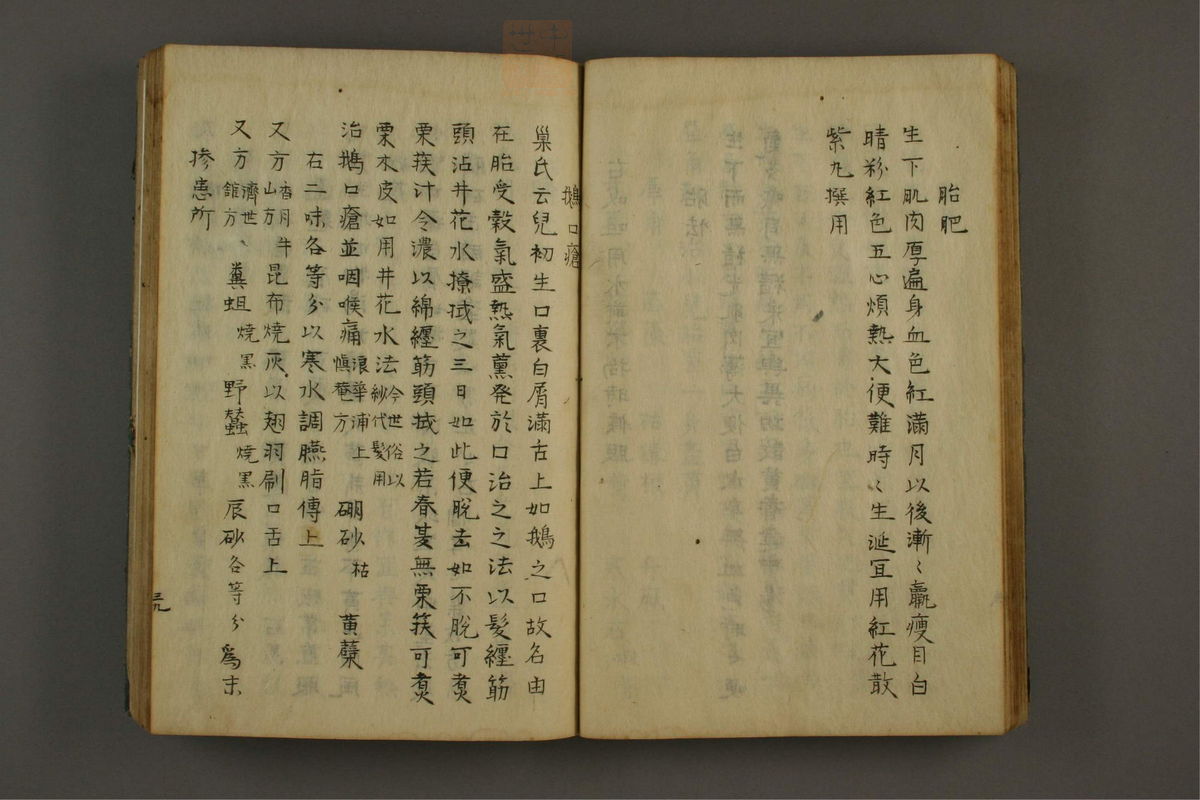 胎肥
生下肌肉厚遍身血色紅滿月以後漸〻羸瘦目白
睛粉紅色五心煩熱大便難時〻生涎宜用紅花散
紫丸撰用
鵝口瘡
巢氏云兒初生口裏白屑滿舌上如鵝之口故名由
在胎受穀氣盛熱氣薰発於口治之之法以髮纏筋
頭沾井花水撩拭之三日如此便脫去如不脫可煑
栗蔟汁令濃以綿纒筋頭拭之若春夏無栗蔟可煑
栗木皮如用井花水法今世俗以紗代髮用
治鵝口瘡並咽喉痛浪華浦上愼菴方 硼砂枯 黃蘗
右二味各等分以寒水調臙脂傳上
又方香月牛山方 昆布燒灰以翅羽刷口舌上
又方濟世館方 糞蛆燒黑 野蠶燒黑 辰砂各等分爲末
摻患所
三九